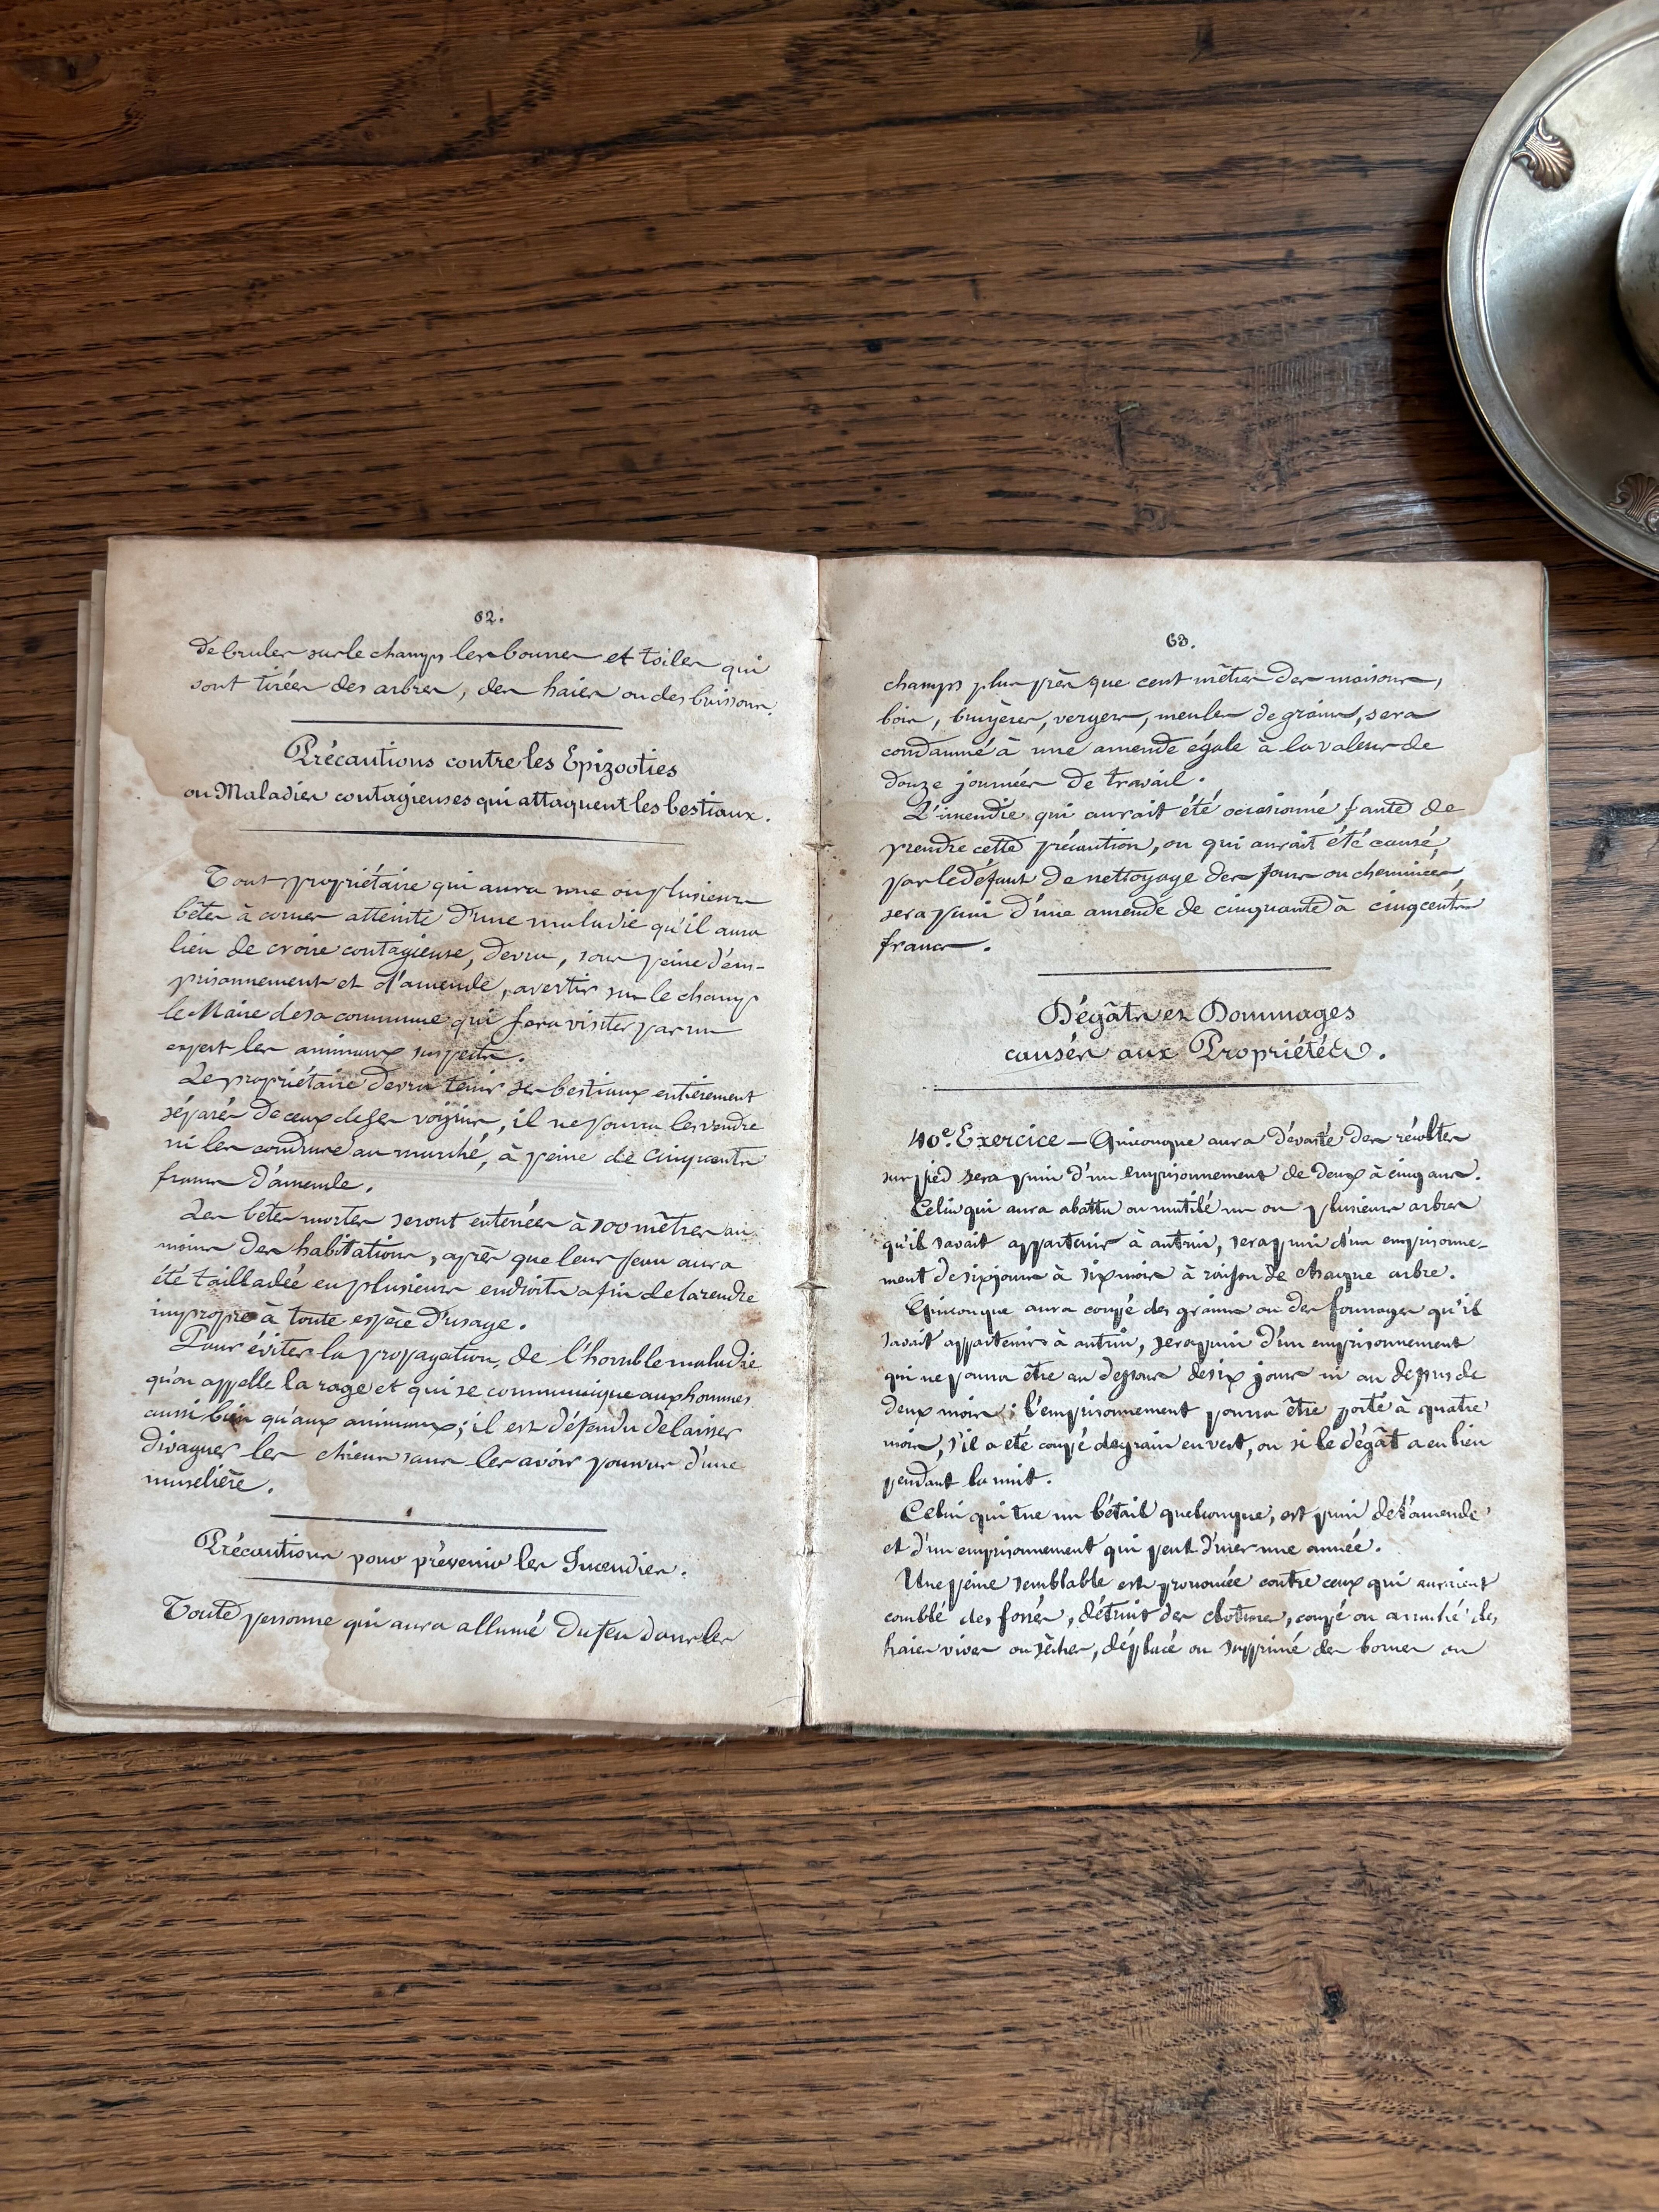 62.
de bruler sur le champs les bourses et toiles qui
sont tirées des arbres, des haies ou des buissons.
Précautions contre les Epizooties
ou Maladies contagieuses qui attaquent les bestiaux.
Tout propriétaire qui aura une ou plusieurs
bêtes à cornes atteinte d'une maladie qu'il aura
lieu de croire contagieuse, devra, sous peine d'em-
prisonnement et d'amende, avertir sur le champ
le Maire de sa commune qui fera visiter par un
expert les animaux suspects.
Le propriétaire devra tenir ses bestiaux entièrement
séparés de ceux de ses voisins, il ne pourra les vendre
ni les conduire au marché, à peine de cinq cents
francs d'amende.
Les bêtes mortes seront enterrées à 100 mètres au
moins des habitations, après que leur peau aura
été tailladée en plusieurs endroits afin de la rendre
impropre à toute espèce d'usage.
Pour éviter la propagation, de l'horrible maladie
qu'on appelle la rage et qui se communique aux hommes
aussi bien qu'aux animaux; il est défendu de laisser
divaguer les chiens sans les avoir pourvus d'une
muselière.
Précautions pour prévenir les Incendies.
Toute personne qui aura allumé du feu dans les
63.
champs plus près que cent mètres des maisons,
bois, bruyères, vergers, meules de grains, sera
condamné à une amende égale à la valeur de
douze journées de travail.
L'incendie qui aurait été occasionné faute de
prendre cette précaution, ou qui aurait été causé,
par le défaut de nettoyage des fours ou cheminées,
sera puni d'une amende de cinquante à cinq cents
francs.
Dégâts et Dommages
causés aux Propriétés.
40e. Exercice – Quiconque aura dévasté des récoltes
sur pied sera puni d'un emprisonnement de deux à cinq ans.
Celui qui aura abattu ou mutilé un ou plusieurs arbres
qu'il savait appartenir à autrui, sera puni d'un emprisonne-
ment de six jours à six mois à raison de chaque arbre.
Quiconque aura coupé des grains ou des fourrages qu'il
savait appartenir à autrui, sera puni d'un emprisonnement
qui ne pourra être au dessous de six jours ni au dessus de
deux mois; l'emprisonnement pourra être porté à quatre
mois, s'il a été coupé de grain en vert, ou si le dégât a eu lieu
pendant la nuit.
Celui qui tue un bétail quelconque, est puni de l'amende
et d'un emprisonnement qui peut durer une année.
Une peine semblable est prononcée contre ceux qui auraient
comblé des fossés, détruit des clotures, coupé ou arraché des
haies vives ou sèches, déplacé ou supprimé des bornes ou